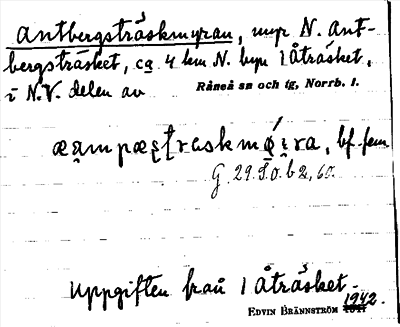 Antbergsträskmyran, myr N. Ant-
bergsträsket, ca 4 km N. byn 1 Åträsket,
i N.V. delen av Råneå sn och tg, Norrb. l.
bf. fem
G. 29. S.o. b 2, 60.
Uppgiften från 1 Åträsket.
1942.
EDVIN BRÄNNSTRÖM 1941.